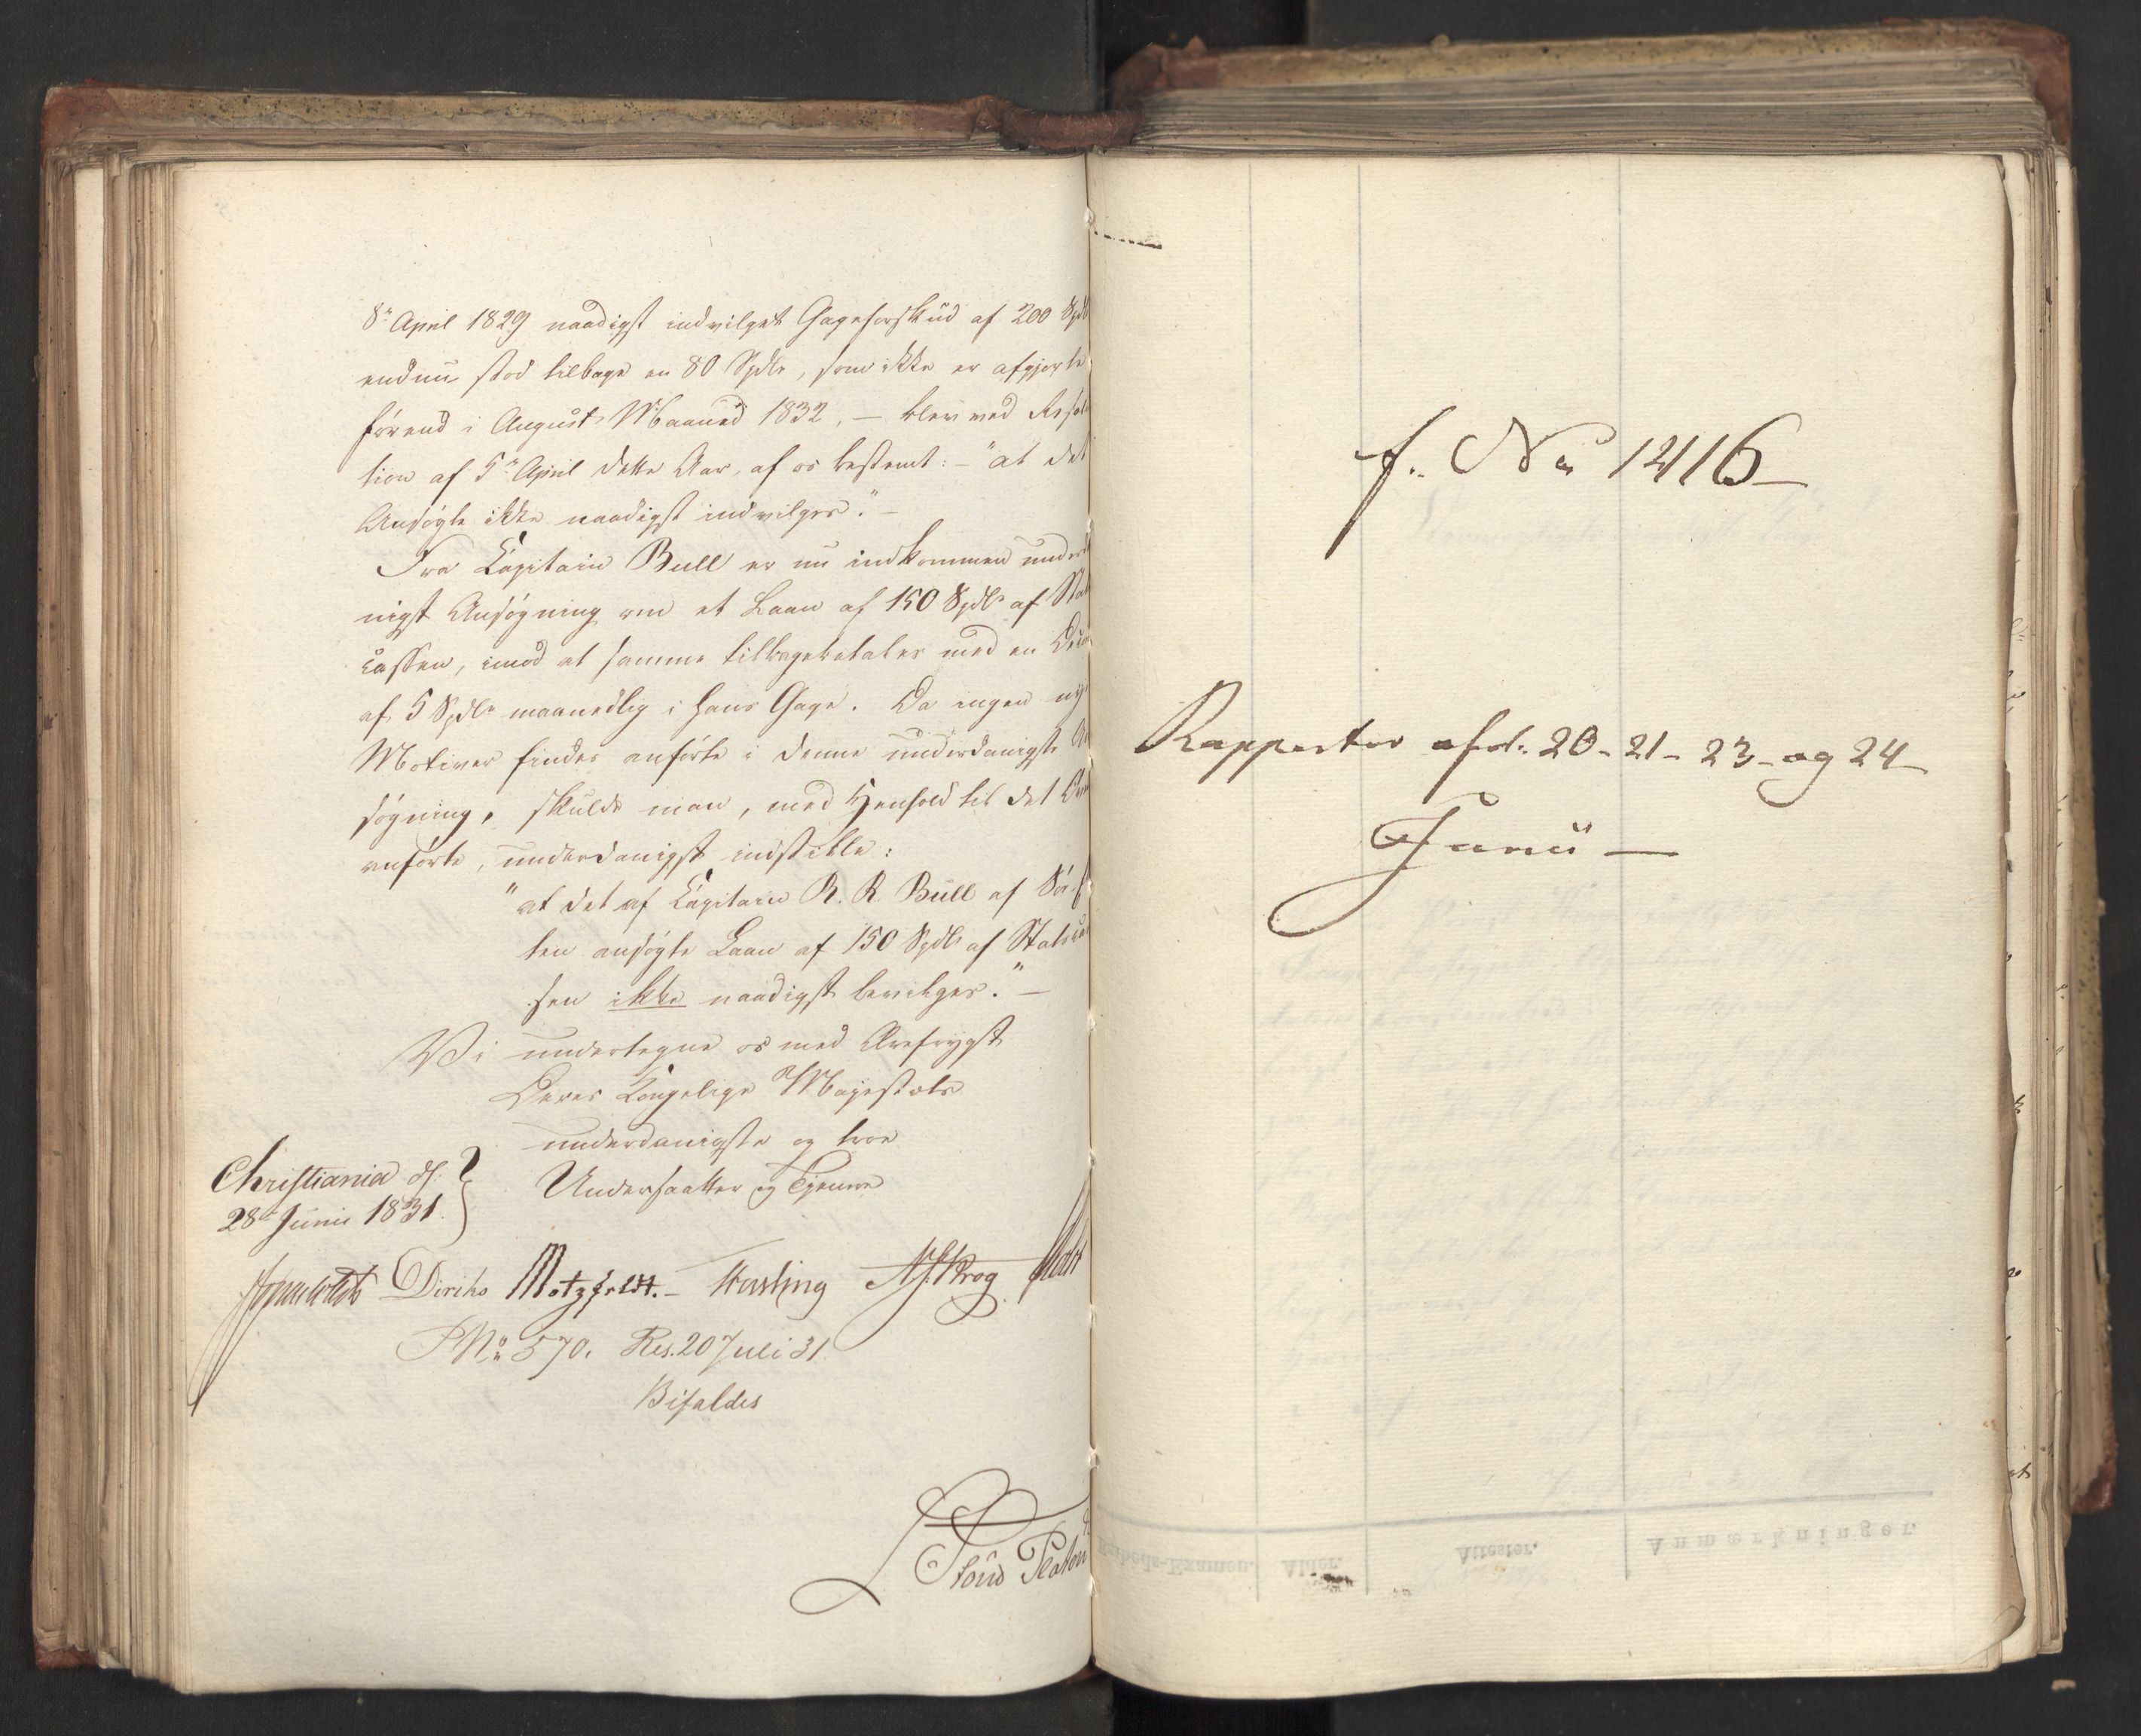 8de April 1829 naadigst indvilget Gageforskud af 200 Spdl
endnu stod tilbage en 80 Spdlr, som ikke er afgjorte
förend i August Maaned 1832, — blev ved Resol
tion af 5te April dette Aar, af os bestemt: – "at det
Ansögte ikke naadigst indvilges." –
Fra Capitain Bull er nu indkommen underd
nigst Ansögning om et Laan af 150 Spdlr af Stats
cassen, imod at samme tilbagebetales med en
af 5 Spdlr maanedlig i hans Gage. Da ingen ny
Motiver findes anförte i denne underdanigste An
sögning, skulde man, med Henhold til det
anförte, underdanigst indstille:
"at det af Capitain R. R. Bull af Sö
ten ansögte Laan af 150 Spdlr af Statscas
sen ikke naadigst bevilges." —
Vi undertegne os med Ærefrygt
Deres Kongelige Majestæts
underdanigste og troe
Undersaatter og Tjenere
Christiania d.
28de Junii 1831.
Diriks Motzfeldt. – Fasting Krog
No 570. Res. 20 Juli 31
Bifaldes
f. No 1216
Rapporter afd. 20 - 21 - 23 - og 24 -
Junii —
Examen. Alder. Attester. Anmærkninger.